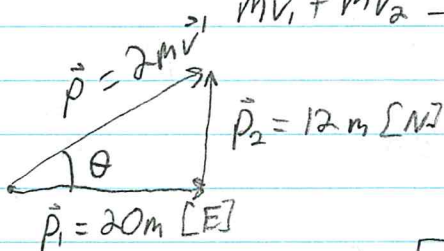 mv⃗₁ + mv⃗₂ =
p⃗ = 2mv⃗'
p⃗₂ = 12m [N]
θ
p⃗₁ = 20m [E]